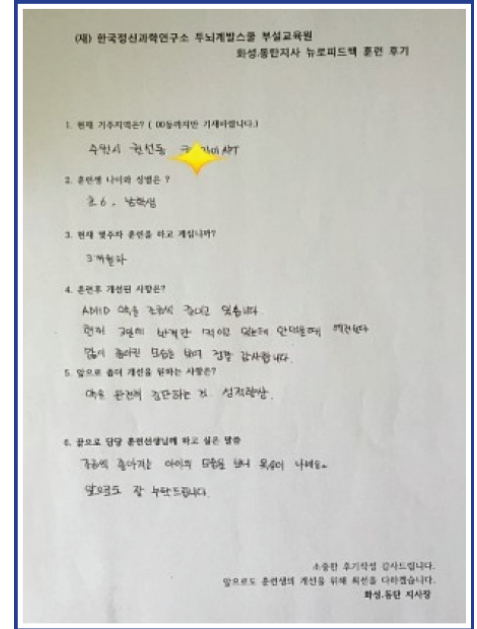 (재) 한국정신과학연구소 두뇌개발스쿨 부설교육원
화성.동탄지사 뉴로피드백 훈련 후기
1. 현재 거주지역은? ( 00동까지만 기재바랍니다.)
수원시 권선동 APT
2. 훈련생 나이와 성별은 ?
초6. 남학생
3. 현재 몇주차 훈련을 하고 계십니까?
3개월차
4. 훈련후 개선된 사항은?
ADHD 약을 조금씩 줄이고 있습니다.
현재 2일에 반개만 먹이고 있는데 안먹을때 예전보다
많이 좋아진 모습을 보여 정말 감사합니다.
5. 앞으로 좀더 개선을 원하는 사항은?
약을 완전히 중단하는 것. 성적향상.
6. 끝으로 담당 훈련선생님께 하고 싶은 말씀
조금씩 좋아지는 아이의 모습을 보니 욕심이 나네요.
앞으로도 잘 부탁드립니다.
소중한 후기작성 감사드립니다.
앞으로도 훈련생의 개선을 위해 최선을 다하겠습니다.
화성.동탄 지사장